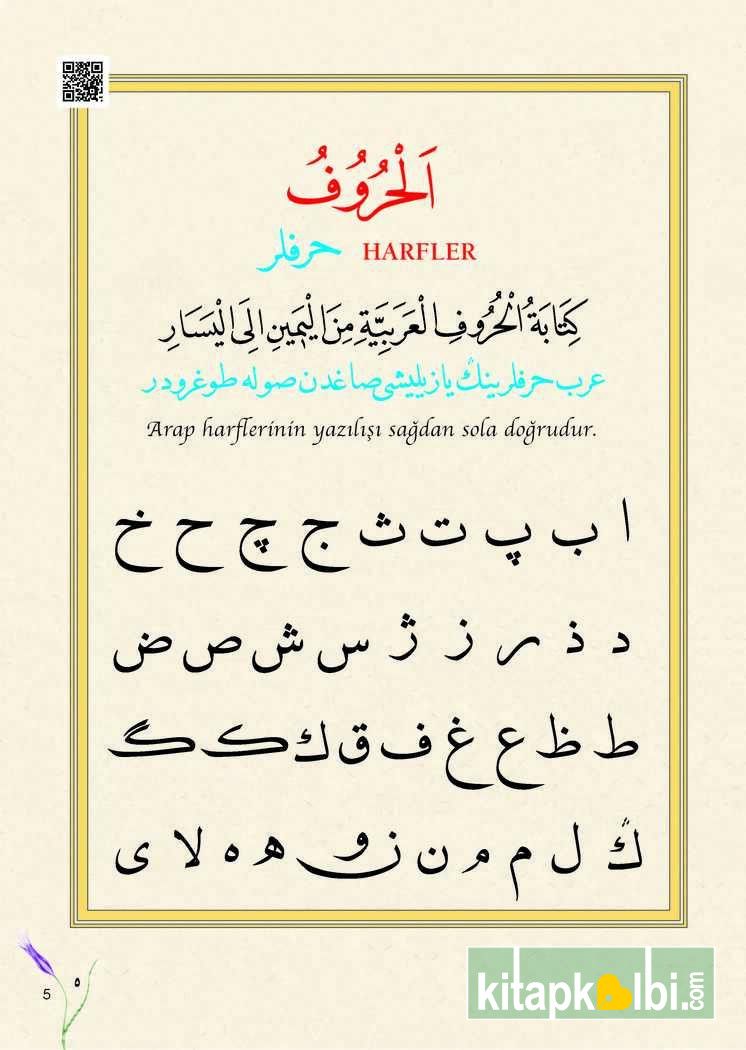 اَلْحُرُوفُ
حرفلر HARFLER
كِتَابَةُ الْحُرُوفِ الْعَرَبِيَّةِ مِنَ الْيَمِينِ اِلَى الْيَسَارِ
عرب حرفلرينڭ يازيليشى صاغدن صوله طوغرودر
Arap harflerinin yazılışı sağdan sola doğrudur.
ا ب پ ت ث ج چ ح خ
د ذ ر ز ژ س ش ص ض
ط ظ ع غ ف ق ك ک گ
ڭ ل م م ن ن و ه ه لا ى
5 ٥
kitapkalbi.com